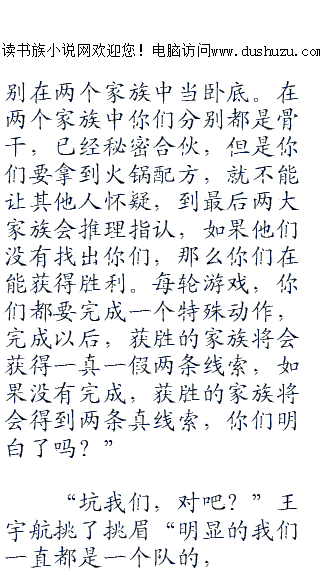 读书族小说网欢迎您！电脑访问www.dushuzu.com
别在两个家族中当卧底。在
两个家族中你们分别都是骨
干，已经秘密合伙，但是你
们要拿到火锅配方，就不能
让其他人怀疑，到最后两大
家族会推理指认，如果他们
没有找出你们，那么你们在
能获得胜利。每轮游戏，你
们都要完成一个特殊动作，
完成以后，获胜的家族将会
获得一真一假两条线索，如
果没有完成，获胜的家族将
会得到两条真线索，你们明
白了吗？”
“坑我们，对吧？”王
宇航挑了挑眉“明显的我们
一直都是一个队的，